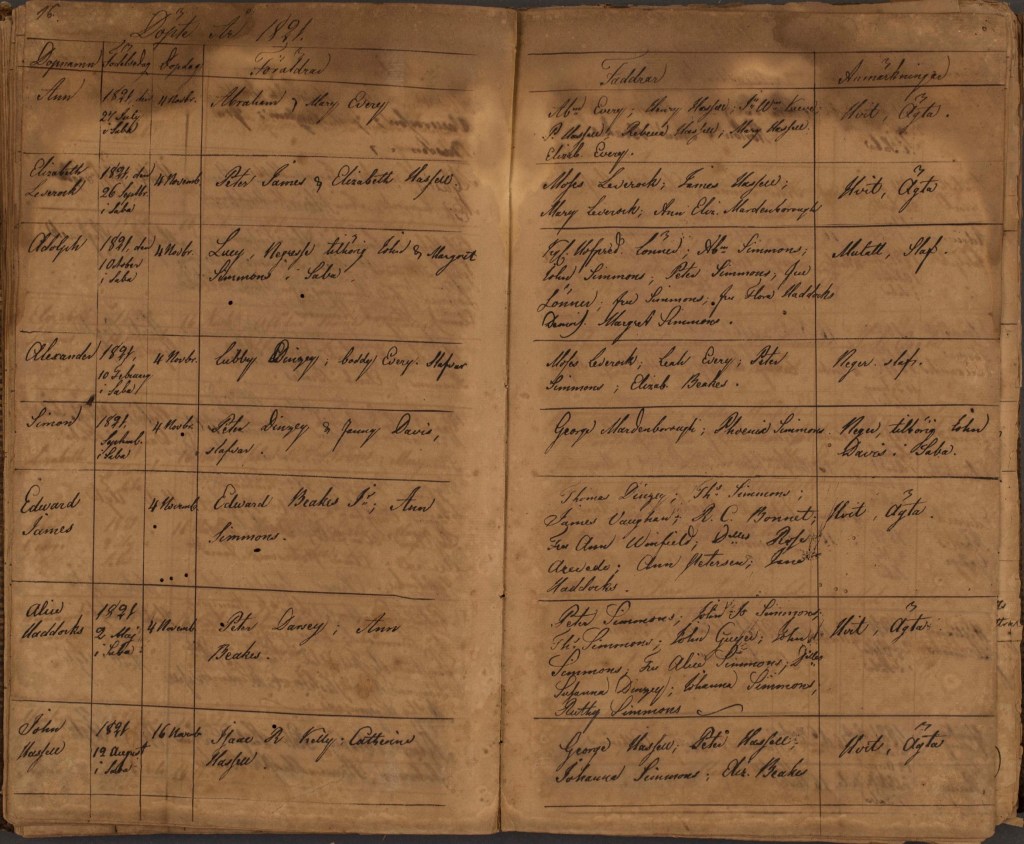 96.
Döpte År 1821.
Dopnamn Födelsedag Dopdag Föräldrar Faddrar Anmärkningar
Ann 1821, den 4 Novbr. Abraham & Mary Every Abm Every; Henry Hassell;
24 July
i Saba Hassell; Rebecca Hassell; Mary Hassell Hvit, Ägta.
Elizab Every.
Elizabeth 1821, den 4 Novemb. Peter James & Elizabeth Hassell Moses Leverock; James Hassell; Hvit, Ägta
Leverock 26 Septbr.
i Saba Mary Leverock; Ann Eliz. Mardenborough
Adolph 1821, den 4 Novbr. Lucy, Negresse tilhörig John & Margret Lönner; Abm Simmons; Mulatt, Slaf.
1 October Simmons i Saba. John Simmons; Peter Simmons; fru
i Saba Lönner; fru Simmons; fru Flora Haddocks
Margret Simmons.
Alexander 1821, 4 Novbr. Cubby Dinzey; Coddy Every. Slafvar Moses Leverock; Leah Every; Peter Neger. slaf.
10 February Simmons; Elizab Beakes.
i Saba
Simon 1821. 4 Novbr. Peter Dinzey & Jenny Davis, George Mardenborough; Phoenix Simmons Neger, tilhörig John
Septemb. slafvar. Davis i Saba.
i Saba
Edward 4 Novemb. Edward Beakes Jr; Ann Thomas Dinzey; Ths Simmons;
James Simmons. James Vaughan; R. C. Bonnet; Hvit, Ägta.
Fru Ann Winfield; Rose
Azevedo; Ann Petersen; Jane
Haddocks.
Alice 1821 4 Novemb. Peter Darsey; Ann Peter Simmons; John Simmons; Hvit, Ägta
Haddocks 2 Maj Beakes. Ths Simmons; John Guyer; John
i Saba Simmons; Fru Alice Simmons;
Susanna Dinzey; Johanna Simmons,
Ruthy Simmons
John 1821 16 Novemb. Isaac R Kelly; Catherine George Hassell; Peter Hassell; Hvit, Ägta
Hassell 12 August Hassell. Johanna Simmons; Eliz. Beakes
i Saba